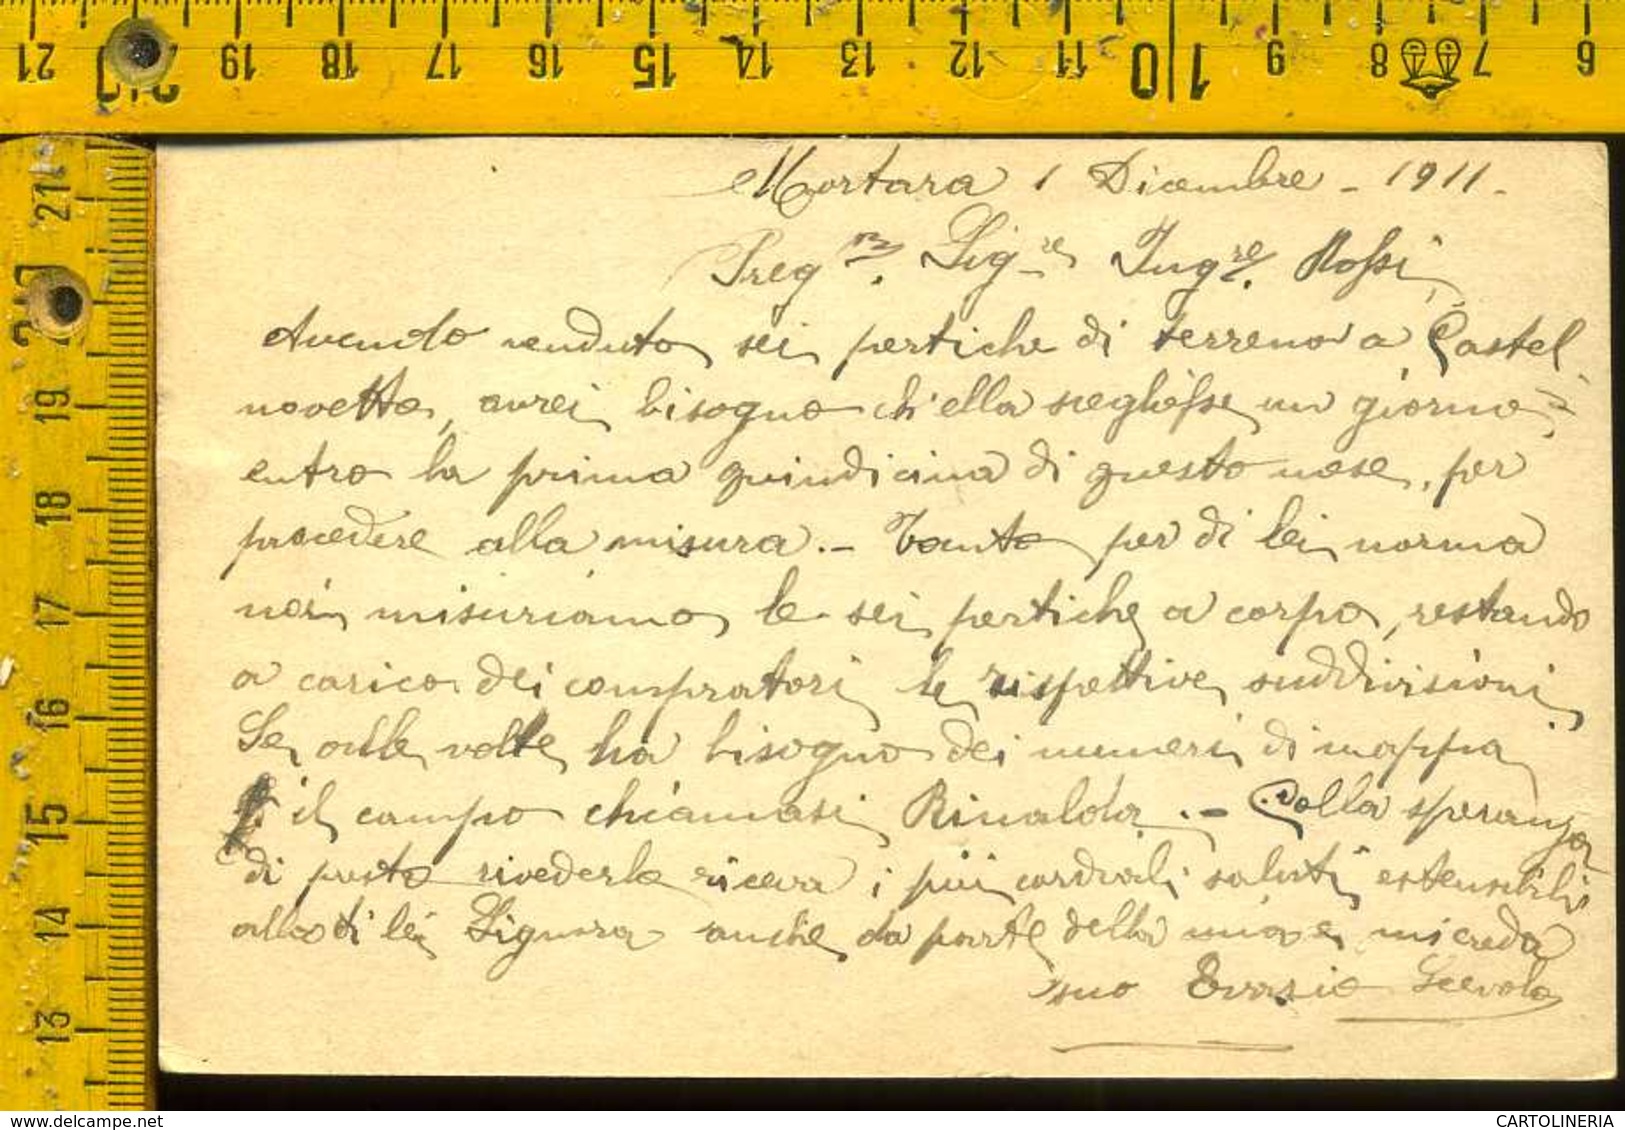 21 20 19 18 17 16 15 14 13 12 11 10 9 8 7 6
21
20
19
18
17
16
15
14
13
Mortara 1 Dicembre - 1911.
Preg.mo Sig.re Ing.re Rossi,
Avendo venduto sei pertiche di terreno a Castel
novetto, avrei bisogno ch'ella scegliesse un giorno
entro la prima quindicina di questo mese, per
procedere alla misura. - Tanto per di lei norma
noi misuriamo le sei pertiche a corpo, restando
a carico dei compratori le rispettive suddivisioni
Se alle volte ha bisogno dei numeri di mappa
il campo chiamasi Rinalda. - Colla speranza
di presto rivederla riceva i più cordiali saluti estensibili
alla di lei Signora anche da parte della mia e mi creda
suo Evasio Scevola
CARTOLINERIA